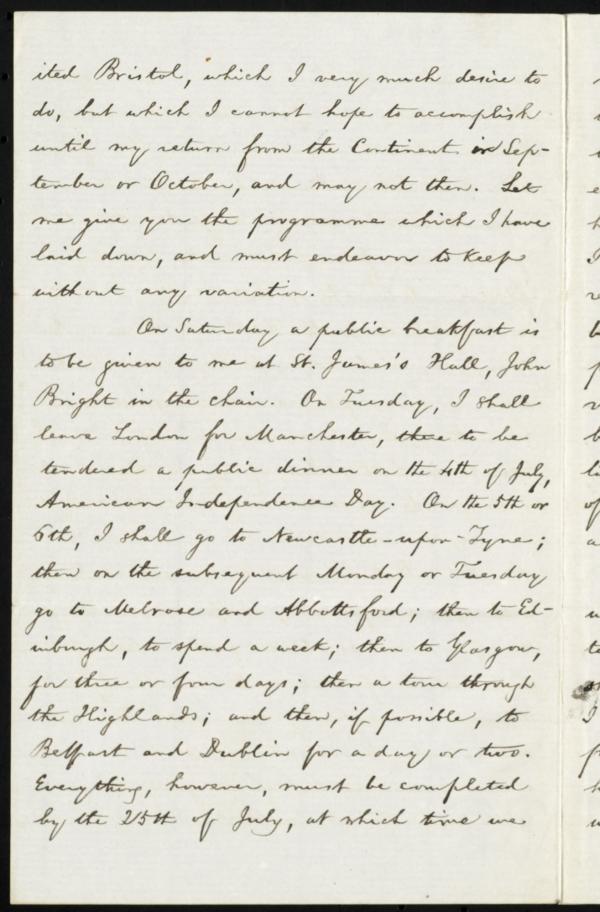 ited Bristol, which I very much desire to
do, but which I cannot hope to accomplish
until my return from the Continent in Sep-
tember or October, and may not then. Let
me give you the programme which I have
laid down, and must endeavor to keep
without any variation.
On Saturday a public breakfast is
to be given to me at St. James's Hall, John
Bright in the chair. On Tuesday, I shall
leave London for Manchester, there to be
tendered a public dinner on the 4th of July,
American Independence Day. On the 5th or
6th, I shall go to Newcastle-upon-Tyne;
then on the subsequent Monday or Tuesday
go to Melrose and Abbottsford; then to Ed-
inburgh, to spend a week; then to Glasgow,
for three or four days; then a tour through
the Highlands; and then, if possible, to
Belfast and Dublin for a day or two.
Everything, however, must be completed
by the 25th of July, at which time we